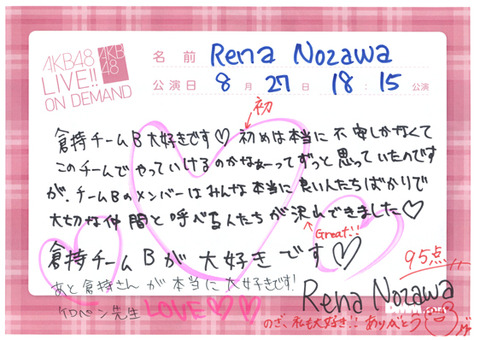 AKB48
LIVE!!
ON DEMAND
AKB
48
名前 Rena Nozawa
公演日 8月27日 18:15公演
初
倉持チームB大好きです♡初めは本当に不安しかなくて
このチームでやっていけるのかなぁーってずっと思っていたのです
が、チームBのメンバーはみんな本当に良い人たちばかりで
大切な仲間と呼べる人たちが沢山できました♡
Great!!
倉持チームBが大好きです♡
95点!!
あと倉持さんが本当に大好きです!
Rena Nozawa
ケロペン先生 LOVE♡♡
のぎ、私も大好き!! ありがとう